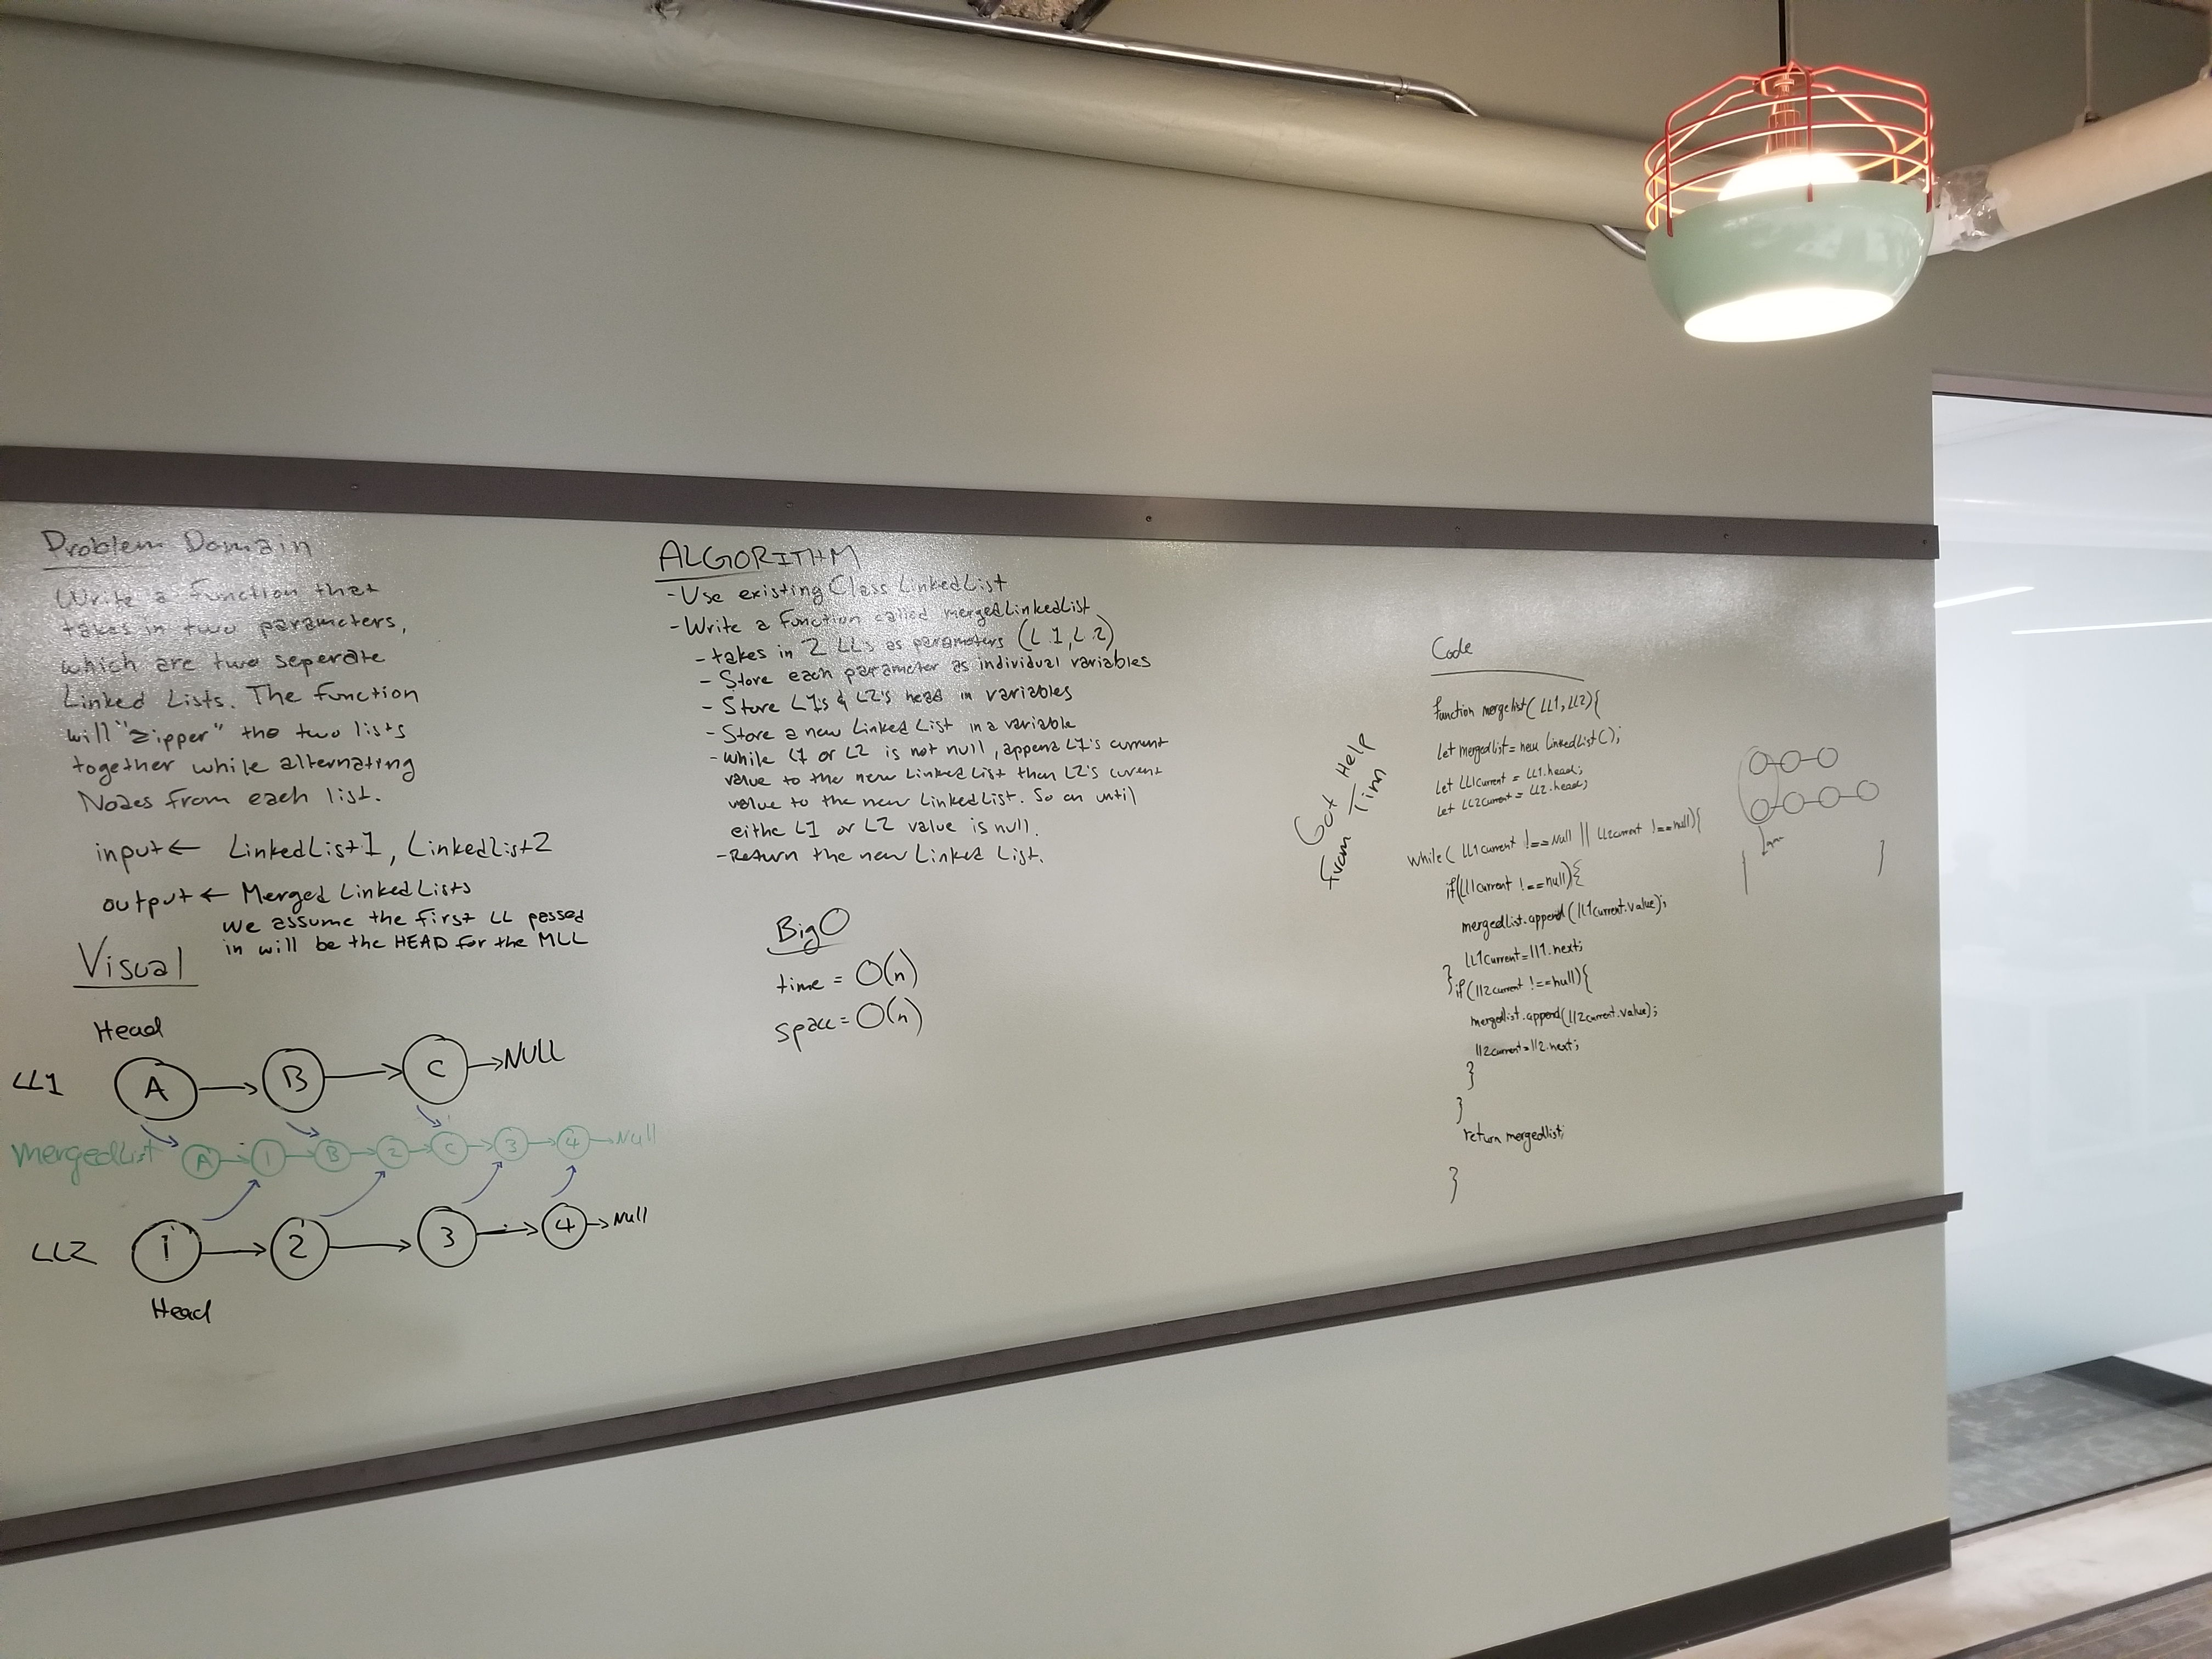 Problem Domain
Write a function that
takes in two parameters,
which are two seperate
Linked Lists. The function
will "zipper" the two lists
together while alternating
Nodes from each list.
input ← LinkedList1, LinkedList2
output ← Merged LinkedLists
we assume the first LL passed
in will be the HEAD for the MLL
Visual
Head
LL1 A → B → C → NULL
mergedList A → 1 → B → 2 → C → 3 → 4 → Null
LL2 1 → 2 → 3 → 4 → Null
Head
ALGORITHM
- Use existing Class LinkedList
- Write a function called mergedLinkedList
- takes in 2 LL's as parameters (L1, L2)
- Store each parameter as individual variables
- Store L1's & L2's head in variables
- Store a new Linked List in a variable
- While L1 or L2 is not null, append L1's current
value to the new Linked List then L2's curent
value to the new LinkedList. So on until
eithe L1 or L2 value is null.
- Return the new Linked List.
Big O
time = O(n)
space = O(n)
Got Help
from Tim
Code
function mergelist(LL1, LL2){
let mergedlist = new LinkedList();
let LL1current = LL1.head;
let LL2current = LL2.head;
while( LL1current !== Null || LL2current !== null){
if(LL1current !== null){
mergedlist.append(LL1current.value);
LL1current = ll1.next;
} if(ll2current !== null){
mergedlist.append(ll2current.value);
ll2current = ll2.next;
}
}
return mergedlist;
}